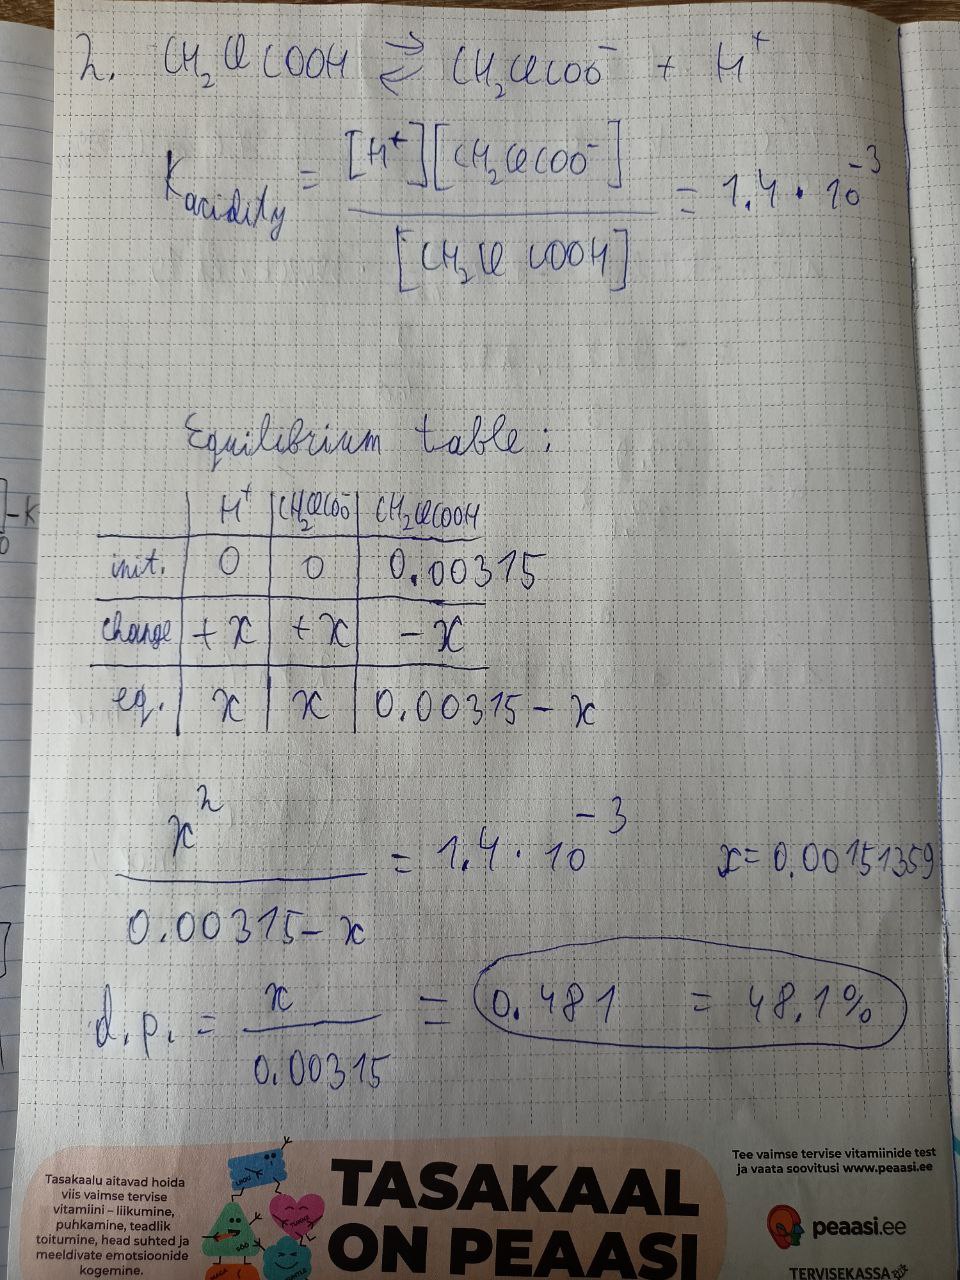 2. CH₂ClCOOH ⇌ CH₂ClCOO⁻ + H⁺
K acidity = [H⁺][CH₂ClCOO⁻] / [CH₂ClCOOH] = 1.4 · 10⁻³
Equilibrium table:
H⁺ CH₂ClCOO⁻ CH₂ClCOOH
init. 0 0 0.00315
change +x +x -x
eq. x x 0.00315 - x
x² / 0.00315 - x = 1.4 · 10⁻³ x = 0.00151359
d.p. = x / 0.00315 = 0.481 = 48.1%
Tasakaalu aitavad hoida
viis vaimse tervise
vitamiini – liikumine,
puhkamine, teadlik
toitumine, head suhted ja
meeldivate emotsioonide
kogemine.
TASAKAAL
ON PEAASI
Tee vaimse tervise vitamiinide test
ja vaata soovitusi www.peaasi.ee
peaasi.ee
TERVISEKASSA